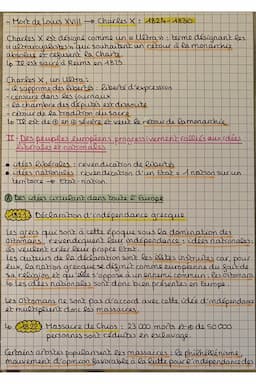 - Mort de Louis XVIII → Charles X : 1824-1830
Charles X est désigné comme un « Ultra » : terme désignant les
« ultraroyalistes » qui souhaitent un retour à la monarchie
absolue et refusent la Charte
↳ Il est sacré à Reims en 1825
Charles X, un Ultra :
- supprime des libertés : liberté d'expression
- censure dans les journaux
- la chambre des députés est dissoute
- retour de la tradition du sacre
↳ Il est et sévère et veut le retour de la monarchie
II - Des peuples européens progressivement ralliés aux idées
libérales et nationales
• idées libérales : revendication de libertés
• idées nationales : revendication d'un État = 1 nation sur un
territoire → État-nation
A Des idées circulent dans toute l'Europe
Déclaration d'indépendance grecque
Les grecs qui sont à cette époque sous la domination des
Ottomans, revendiquent leur indépendance : idées nationales,
ils veulent créer leur propre État
Les auteurs de la déclaration sont les élites instruites car, pour
eux, la nation grecque se définit comme européenne du fait de
sa religion et qu'elle s'oppose à un ennemi commun : les Ottomans
↳ Les idées nationales sont donc bien présentes en Europe
Les Ottomans ne sont pas d'accord avec cette idée d'indépendance
et multiplient donc les massacres.
↳ 1822 Massacre de Chios : 23 000 morts et + de 50 000
personnes sont réduites en esclavage.
Certains artistes popularisent les massacres : le philhellénisme,
mouvement d'opinion favorable à la lutte pour l'indépendance des